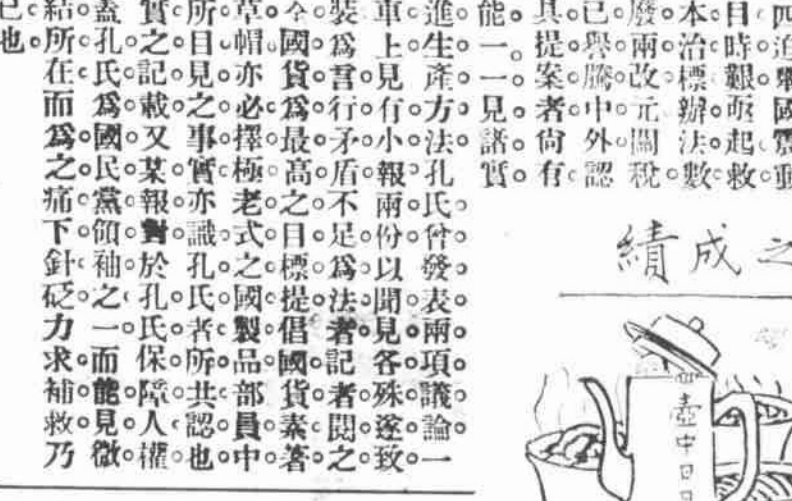 四迫舉國震動
目時艱亟起救
本治標辦法數
廢兩改元關稅
已舉騰中外認
具提案者尙有
能一一見諸實
進生產方法孔氏曾發表兩項議論一
車上見有小報兩份以聞見各殊遂致
裝爲言行矛盾不足爲法者記者閱之
國貨爲最高之目標提倡國貨素著
草帽亦必擇極老式之國製品部員中
所目見之事實亦識孔氏者所共認也
實之記載又某報對於孔氏保障人權
蓋孔氏爲國民黨領袖之一而能見微
結所在而爲之痛下針砭力求補救乃
已也
之成績
壺中日